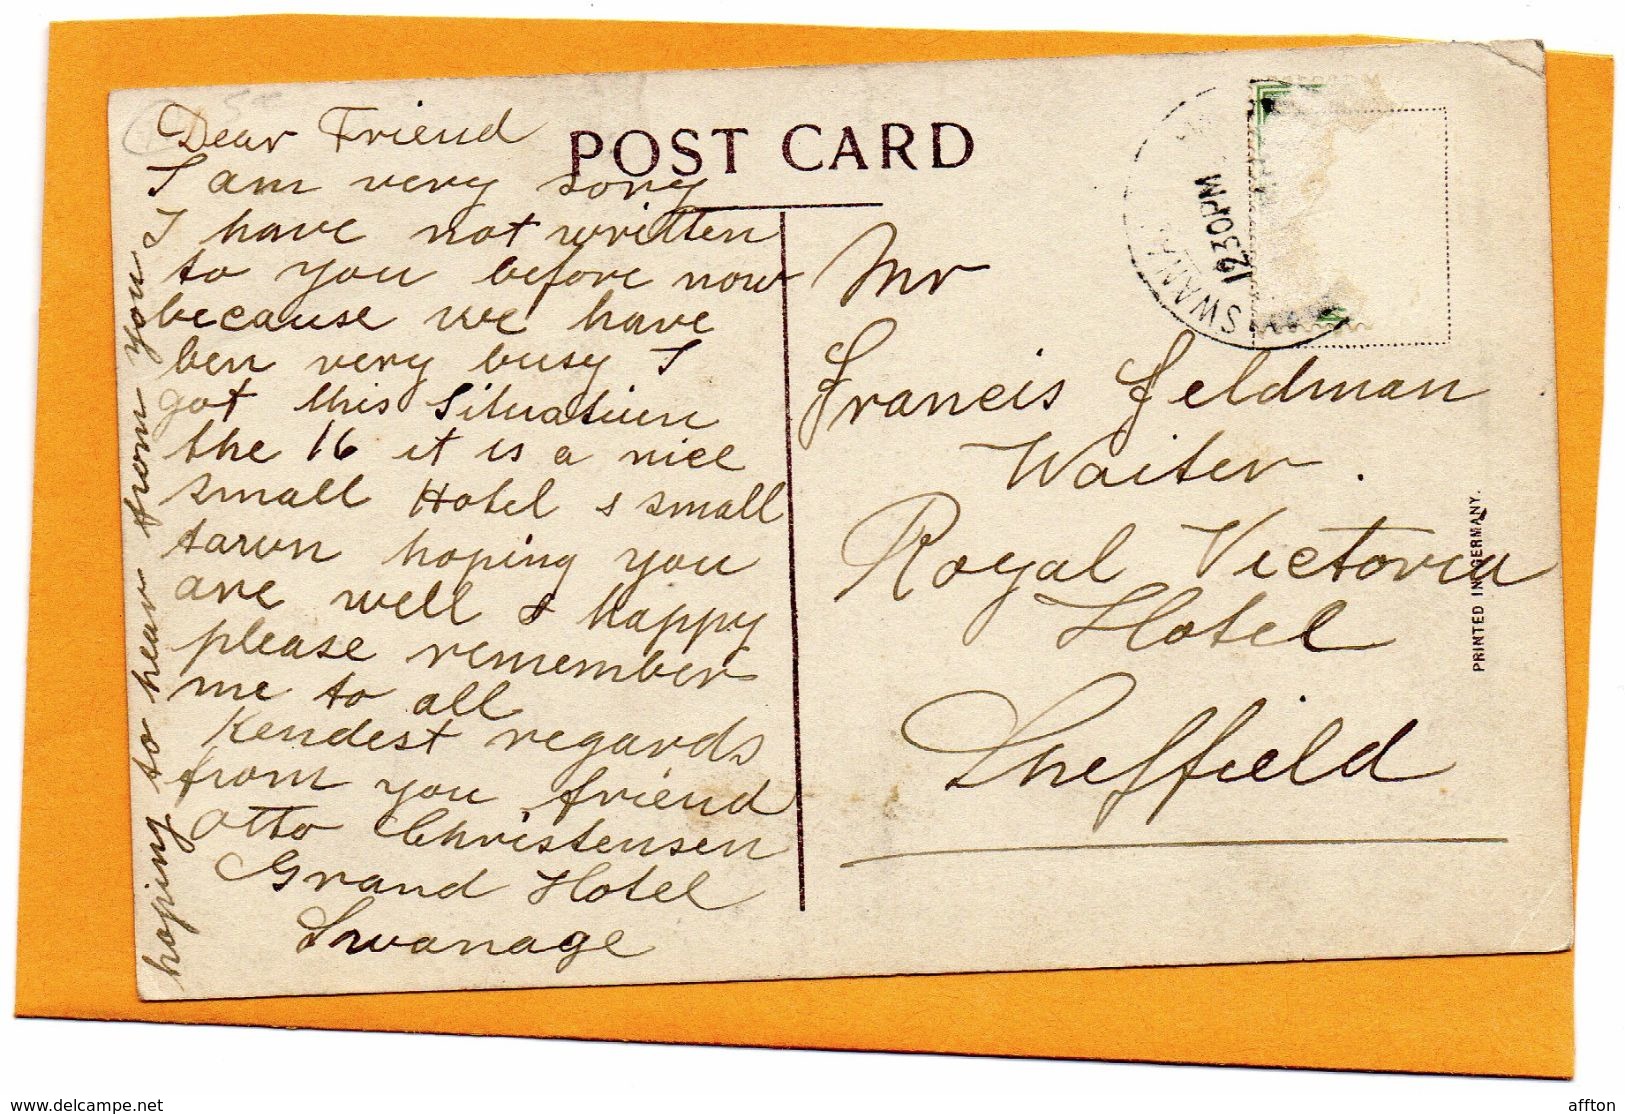 POST CARD
Dear Friend
I am very sory
I have not written
to you before now
because we have
ben very busy I
got this Situation
the 16 it is a nice
small Hotel & small
town hoping you
are well & happy
please remember
me to all
Kendest regards
from you friend
Otto Christensen
Grand Hotel
Swanage
hoping to hear from you
Mr
Francis Feldman
Waiter.
Royal Victoria
Hotel
Sheffield
SWANA
12 30PM
PRINTED IN GERMANY.
www.delcampe.net
affton